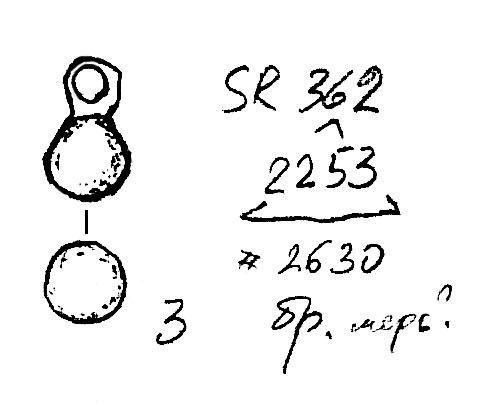 SR 362
2253
# 2630
3
бр.